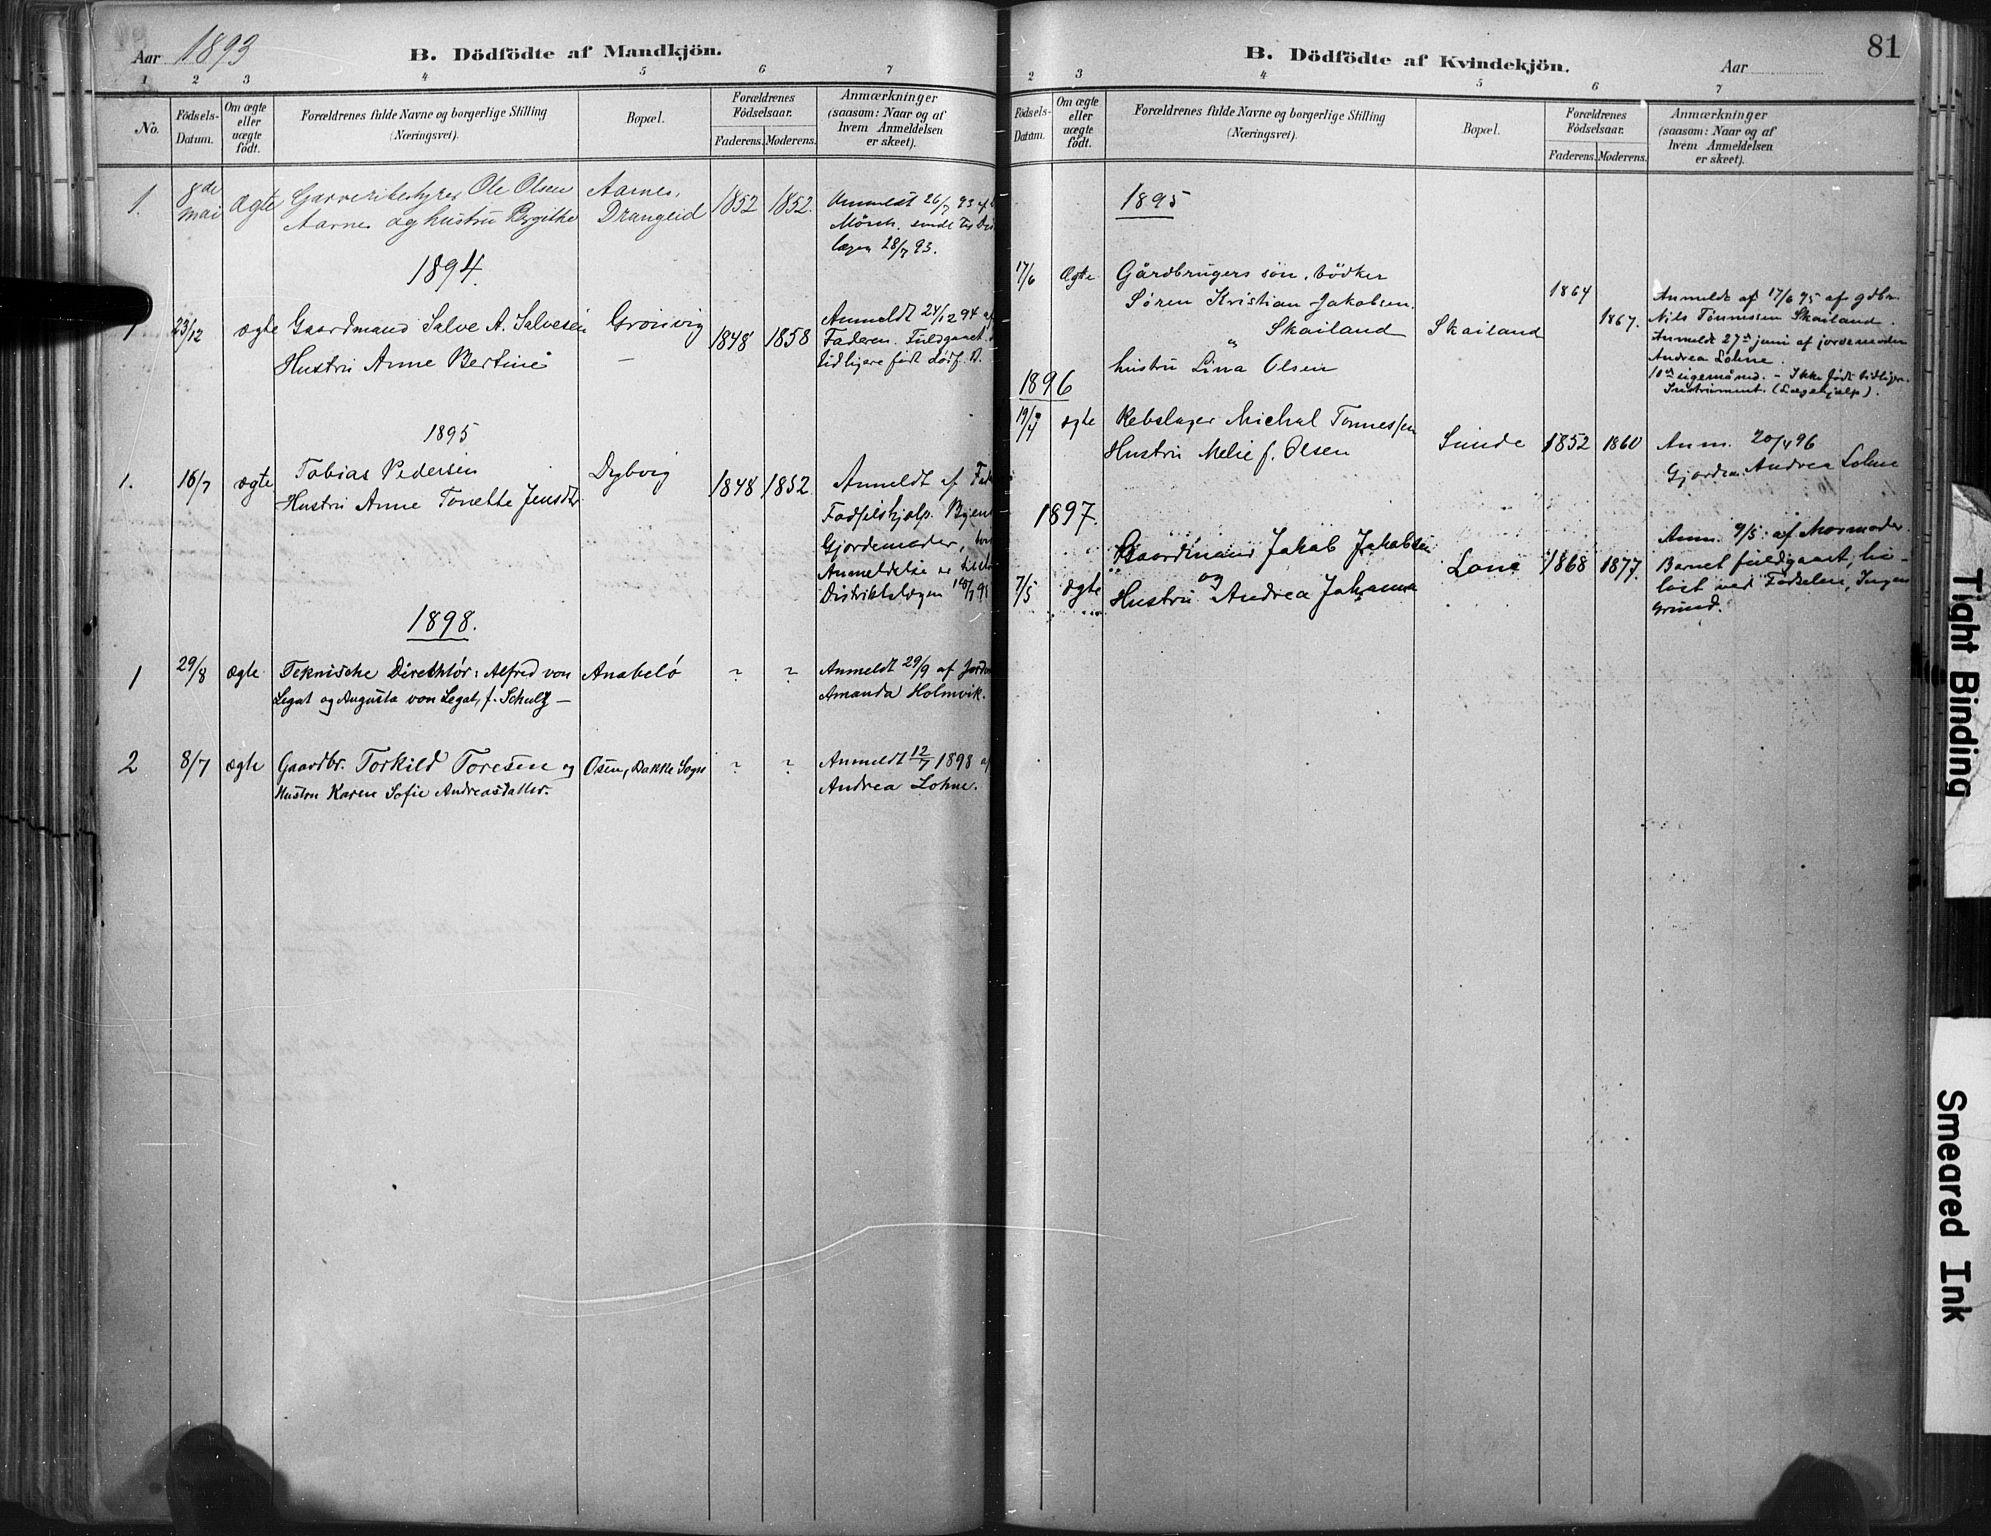 Aar 1893
B. Dödfödte af Mandkjön.
1 2 3 4 5 6 7
No.
Födsels-
Datum.
Om ægte
eller
uægte
födt.
Forældrenes fulde Navne og borgerlige Stilling
(Næringsvei).
Bopæl.
Forældrenes
Födselsaar.
Faderens. Moderens.
Anmærkninger
(saasom: Naar og af
hvem Anmeldelsen
er skeet).
1. 8de mai ægte Garveribestyrer Ole Olsen Aarnes, 1852 1852. Anmeldt 26/7 93
Aarnes og hustru Birgithe Drangeid
Mörch. sendt
lægen 28/7 93.
1894.
1 23/12 ægte Gaardmand Salve A. Salvesen Grönvig 1848 1858 Anmeldt 24/12 94 af
Hustru Anne Bertine
Faderen. Fuldgaaet.
tidligere født dødf. B.
1895
1. 16/7 ægte Tobias Pedersen Dybvig 1848 1852. Anmeldt af
Hustru Anne Tonette Jensdtr
Fødselshjælp.
Gjordemoder,
Anmeldelse
Distriktslægen
1898.
1 29/8 ægte Teknische Direktör: Alfred von Anabelø ? ? Anmeldt 29/9 af
Legat og Augusta von Legat, f. Schulz —
Amanda Holmvik.
2 8/7 ægte Gaardbr. Torkild Toresen og Osen, Bakke Sogn ? ? Anmeldt 12/7 1898 af
Hustru Karen Sofie Andreasdatter.
Andrea Lohne.
B. Dödfödte af Kvindekjön.
Aar
81
2 3 4 5 6 7
Födsels-
Datum.
Om ægte
eller
uægte
födt.
Forældrenes fulde Navne og borgerlige Stilling
(Næringsvei).
Bopæl.
Forældrenes
Födselsaar.
Faderens. Moderens.
Anmærkninger
(saasom: Naar og af
hvem Anmeldelsen
er skeet).
1895
17/6 Ægte Gårdbrugers søn, bödker
Søren Kristian Jakobsen,
Skailand Skailand 1864 1867.
hustru Lina Olsen
Anmeldt af 17/6 95 af gdbr.
Nils Tönnessen Skailand.
Anmeldt 27de juni af jordemoder
Andrea Lohne.
Ikke født tidligere.
Instrument. (Lægehjælp).
1896
19/4 ægte Rebslager Michal Tønnessen
Hustru Melie f. Olsen
Sunde 1852 1860 Anm. 20/4 96
Gjordem. Andrea Lohne
1897.
7/5 ægte Gaardmand Jakob Jakobsen
og
Hustru Andrea Johanna
Lone 1868 1877.
Anm. 9/5 af Mormoder.
Barnet fuldgaaet, liv-
löst ved Fødselen, Ingen
Grund.
Tight Binding
Smeared Ink